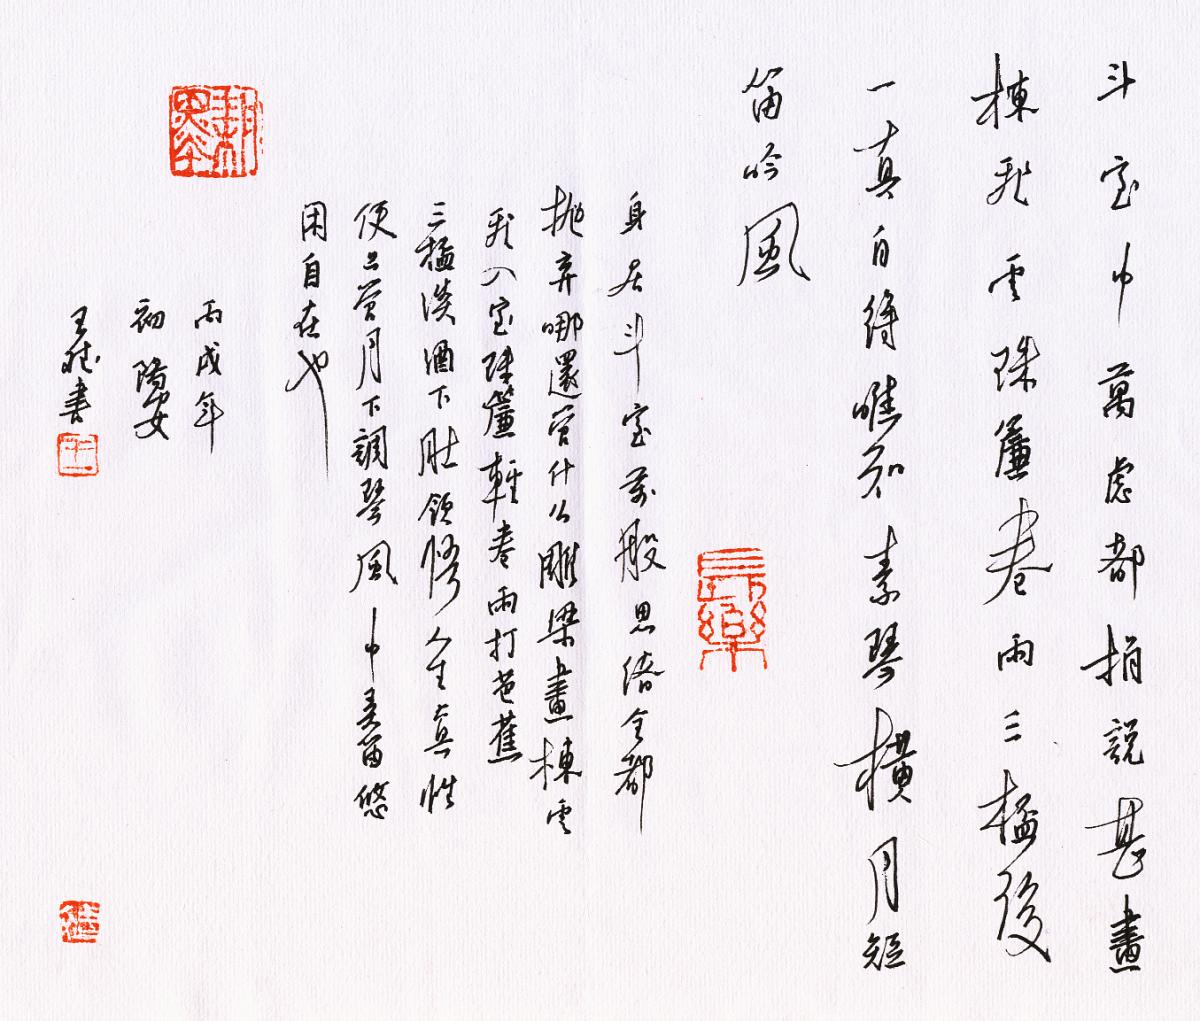 斗室中萬慮都捐説甚畫
棟飛雲珠簾卷雨三杯後
一真自得唯知素琴橫月短
笛吟風
長樂
身居斗室萬般思緒全都
抛弃哪還管什么雕梁畫棟雲
飛入室珠簾輕卷雨打芭蕉
三杯淡酒下肚領悟人生真性
便只管月下調琴風中弄笛悠
閑自在也
丙戌年
初陽安
王書
王